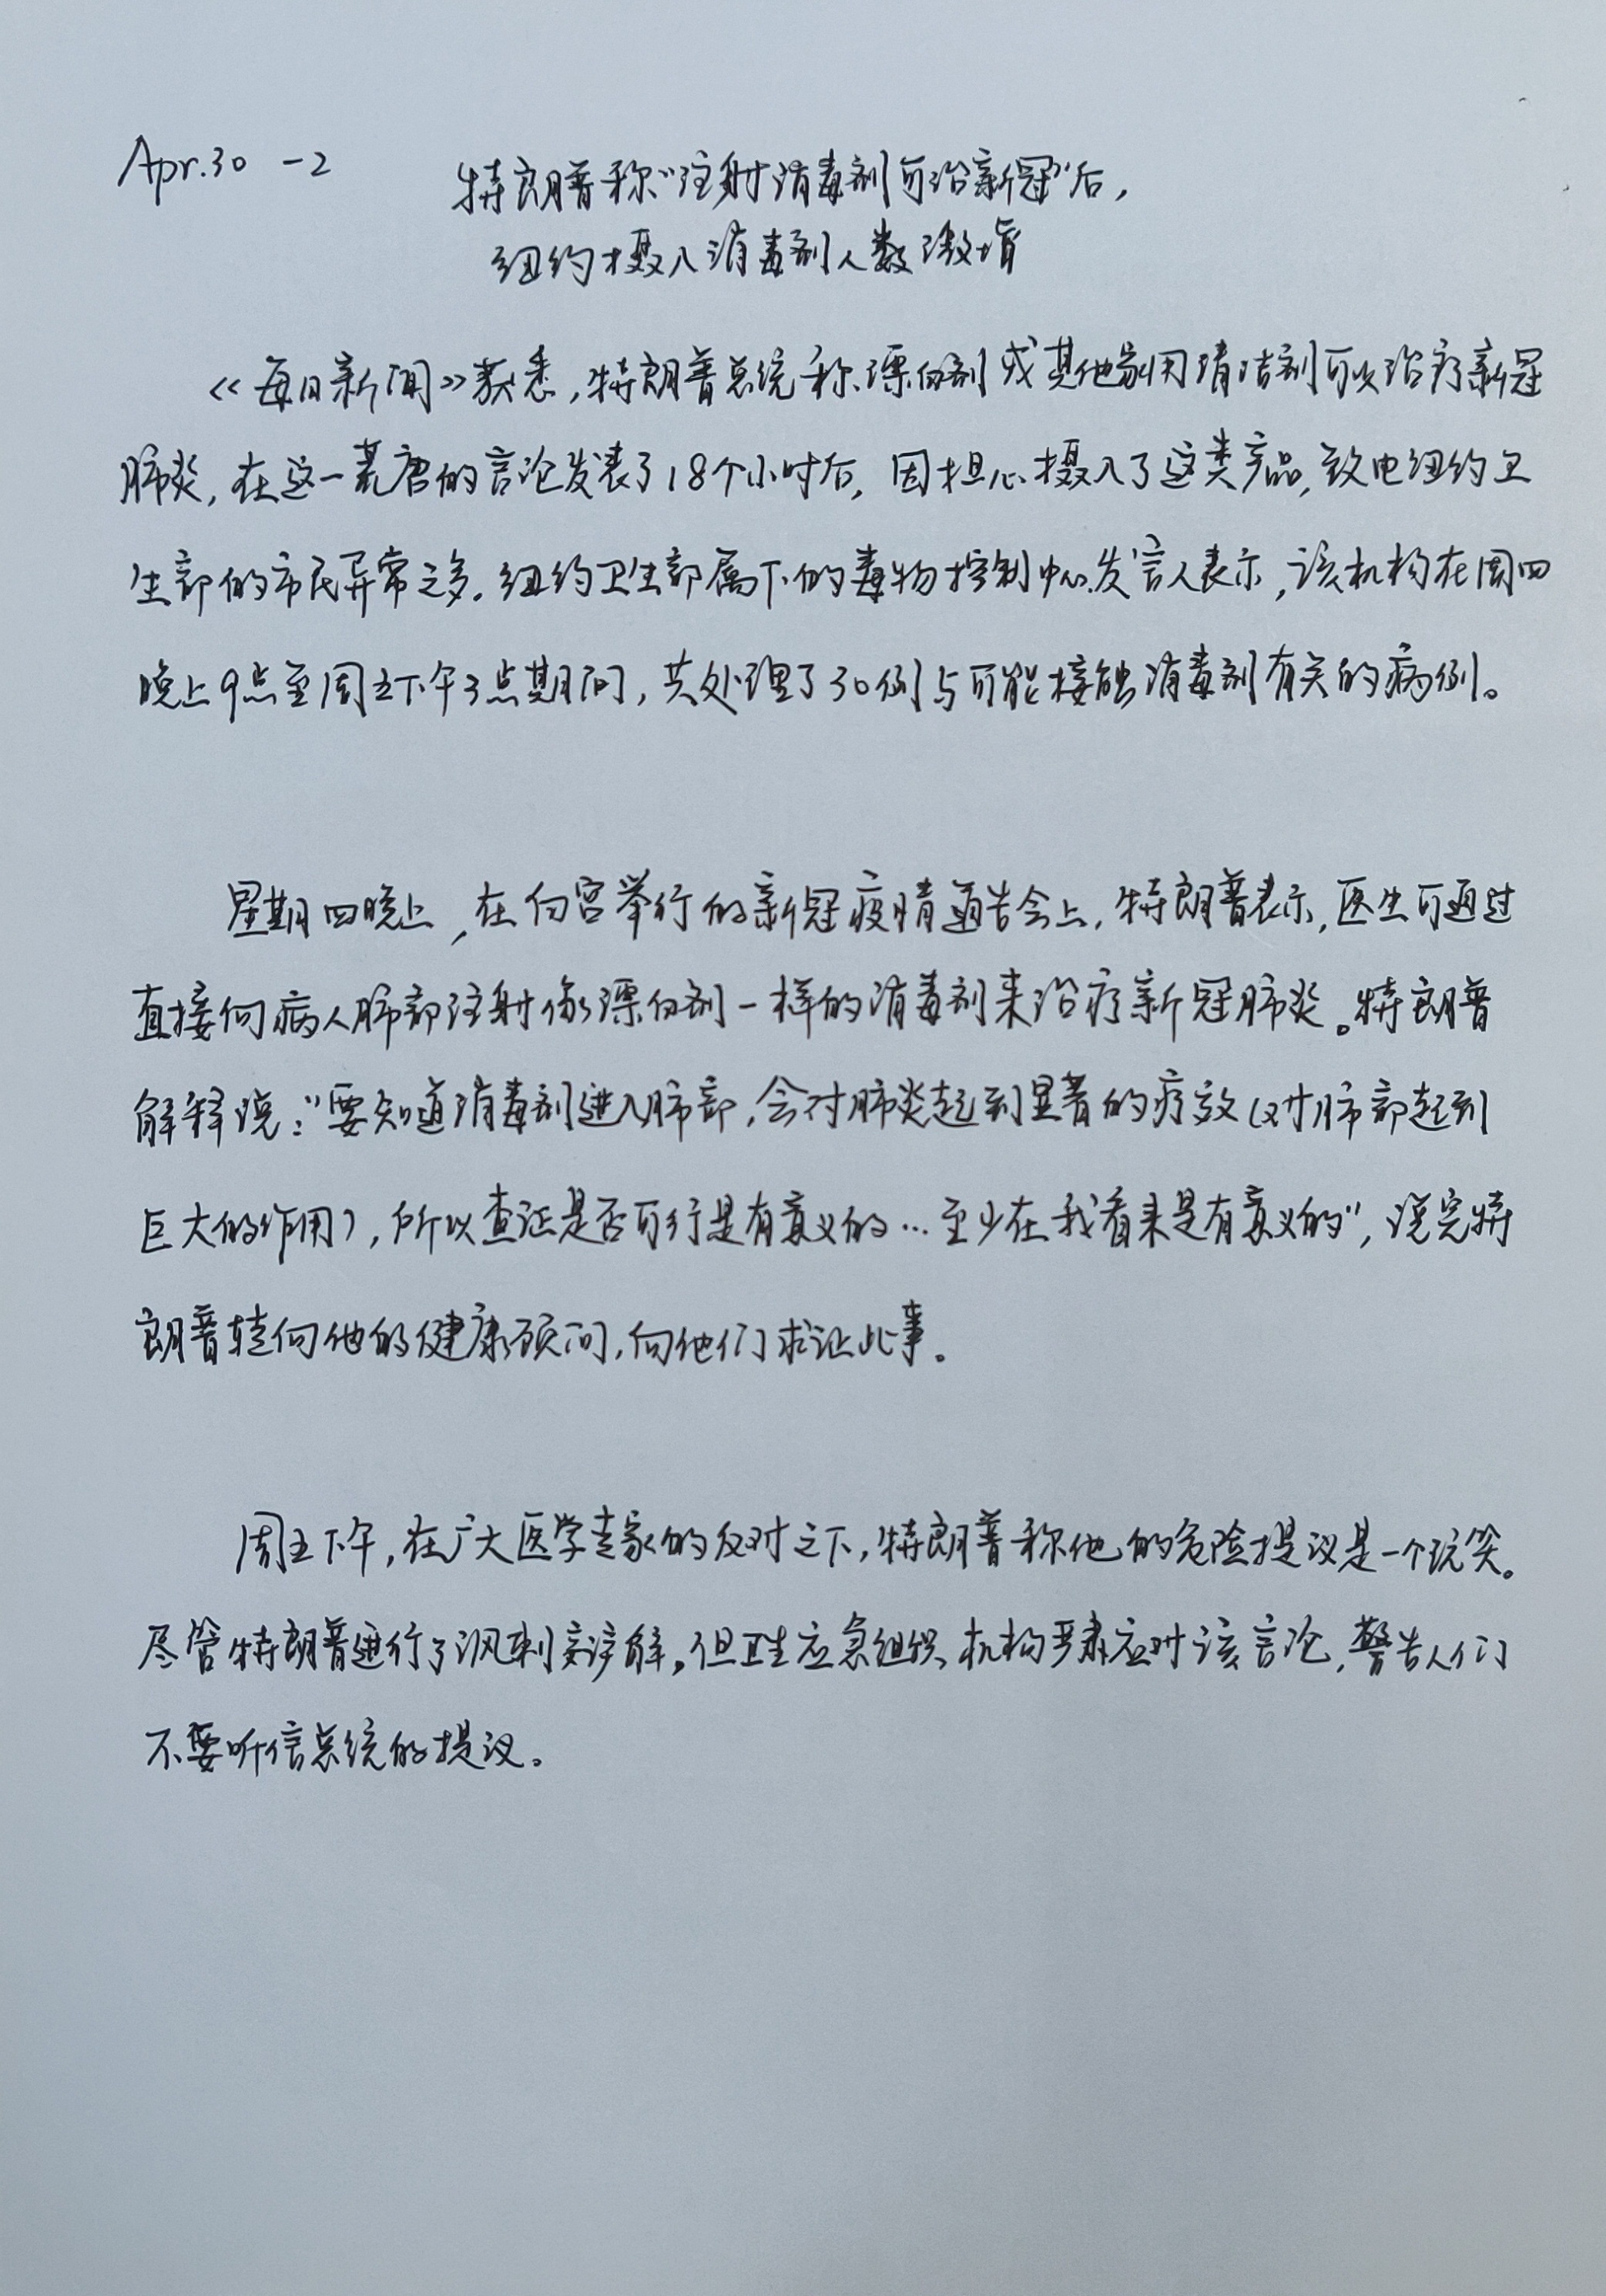 Apr.30 -2
特朗普称“注射消毒剂可治新冠”后,
纽约摄入消毒剂人数激增
《每日新闻》获悉,特朗普总统称漂白剂或其他家用清洁剂可以治疗新冠
肺炎,在这一荒唐的言论发表了18个小时后,因担心摄入了这类产品,致电纽约卫
生部的市民异常之多。纽约卫生部属下的毒物控制中心发言人表示,该机构在周四
晚上9点至周五下午3点期间,共处理了30例与可能接触消毒剂有关的病例。
星期四晚上,在白宫举行的新冠疫情通告会上,特朗普表示,医生可通过
直接向病人肺部注射像漂白剂一样的消毒剂来治疗新冠肺炎。特朗普
解释说:“要知道消毒剂进入肺部,会对肺炎起到显著的疗效(对肺部起到
巨大的作用),所以查证是否可行是有意义的…至少在我看来是有意义的”,说完特
朗普转向他的健康顾问,向他们求证此事。
周五下午,在广大医学专家的反对之下,特朗普称他的危险提议是一个玩笑。
尽管特朗普进行了讽刺辩解,但卫生应急组织机构严肃应对该言论,警告人们
不要听信总统的提议。